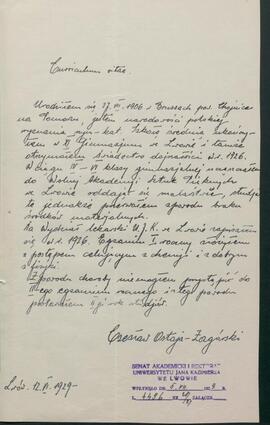 Curriculum vitae.
Urodziłem się 27. VI. 1906 w Brusach pow. Chojnice
na Pomorzu, jestem narodowości polskiej
wyznania rzym-kat. Szkołę średnią ukończy-
łem w II Gimnazjum we Lwowie i tamże
otrzymałem świadectwo dojrzałości w r. 1926.
W ciągu IV - VI klasy gimnazjalnej uczęszczałem
do Wolnej Akademji Sztuk Pięknych
we Lwowie oddając się malarstwu, studja
te jednakże przerwałem z powodu braku
środków materjalnych.
Na Wydział lekarski U. J. K. we Lwowie zapisałem
się w r. 1926. Egzamin I roczny złożyłem
z postępem celującym z chemji i z dobrym
z fizyki.
Z powodu choroby nie mogłem przystąpić do
II-ego egzaminu rocznego i z tego powodu
powtarzałem II-gi rok studjów.
Czesław Ostoja-Zagórski
Lwów, 12. VI. 1929
SENAT AKADEMICKI I REKTORAT
UNIWERSYTETU JANA KAZIMIERZA
WE LWOWIE
WPŁYNĘŁO DN. 5. VII. 1929 R.
L. 4486 ZAŁĄCZN.